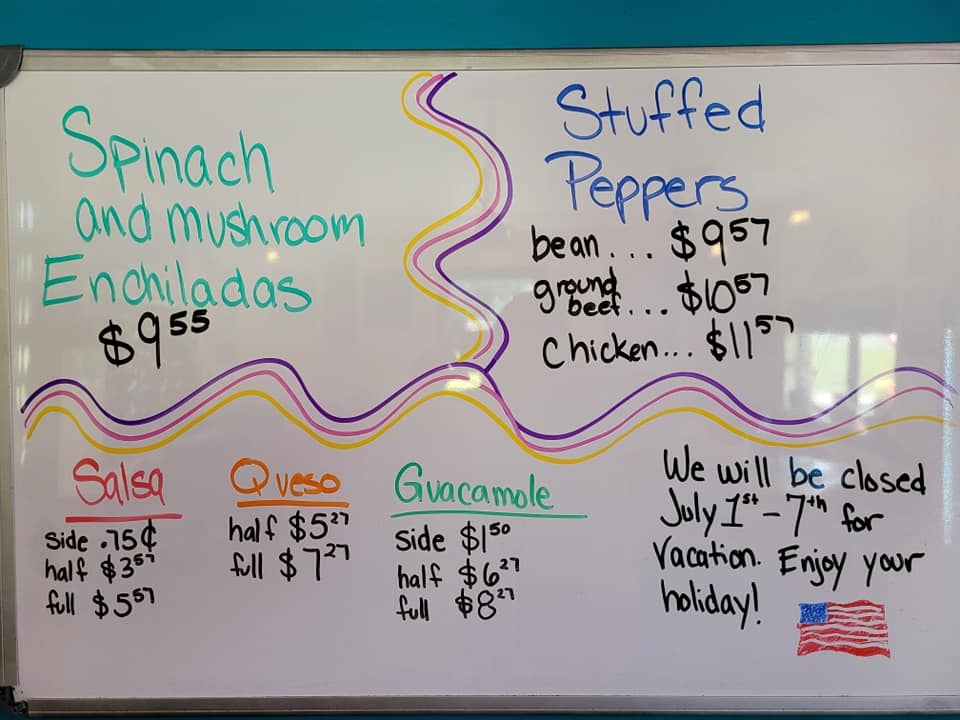 Spinach
and mushroom
Enchiladas
$9.55
Stuffed
Peppers
bean... $9.57
ground beef... $10.57
Chicken... $11.57
Salsa
side .75¢
half $3.57
full $5.57
Queso
half $5.27
full $7.27
Guacamole
side $1.50
half $6.27
full $8.27
We will be closed
July 1st - 7th for
Vacation. Enjoy your
holiday!